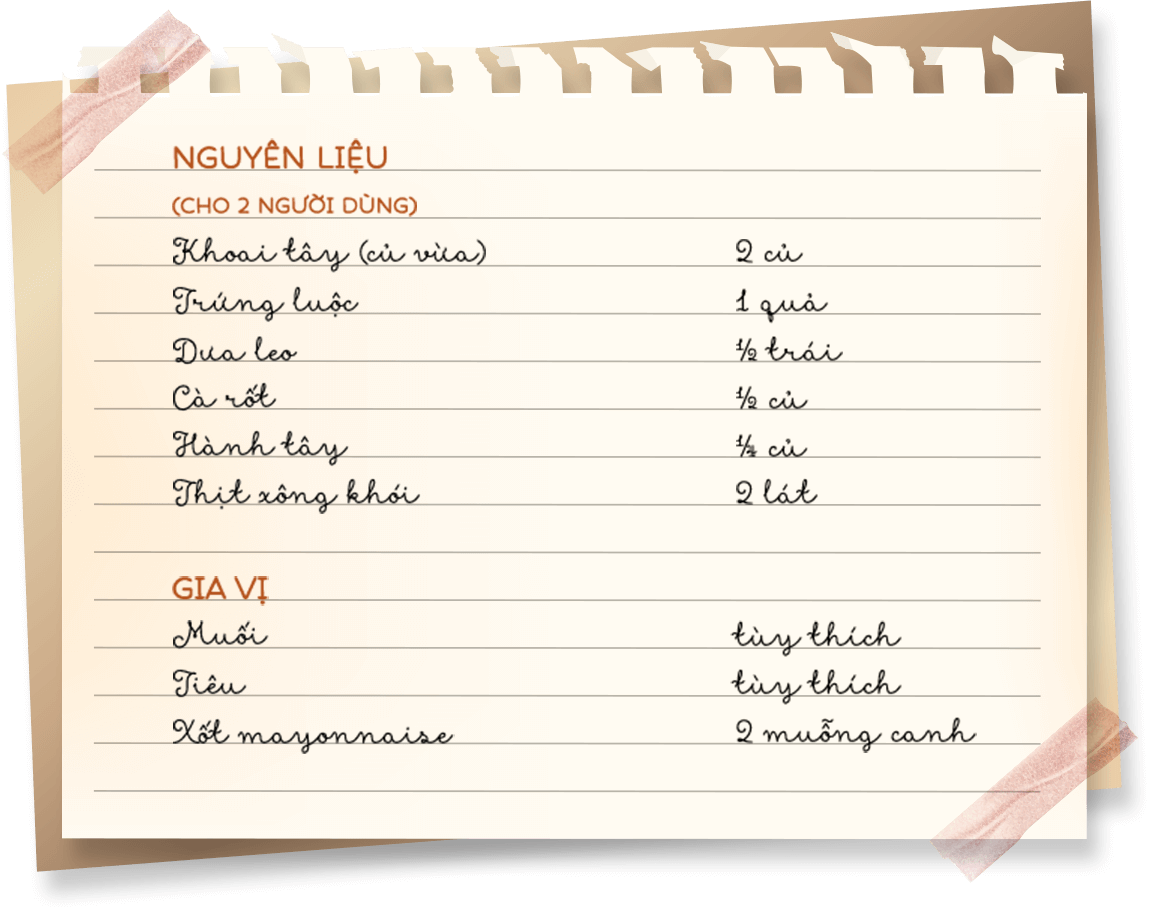 NGUYÊN LIỆU
(CHO 2 NGƯỜI DÙNG)
Khoai tây (củ vừa) 2 củ
Trứng luộc 1 quả
Dưa leo ½ trái
Cà rốt ½ củ
Hành tây ¼ củ
Thịt xông khói 2 lát
GIA VỊ
Muối tùy thích
Tiêu tùy thích
Xốt mayonnaise 2 muỗng canh